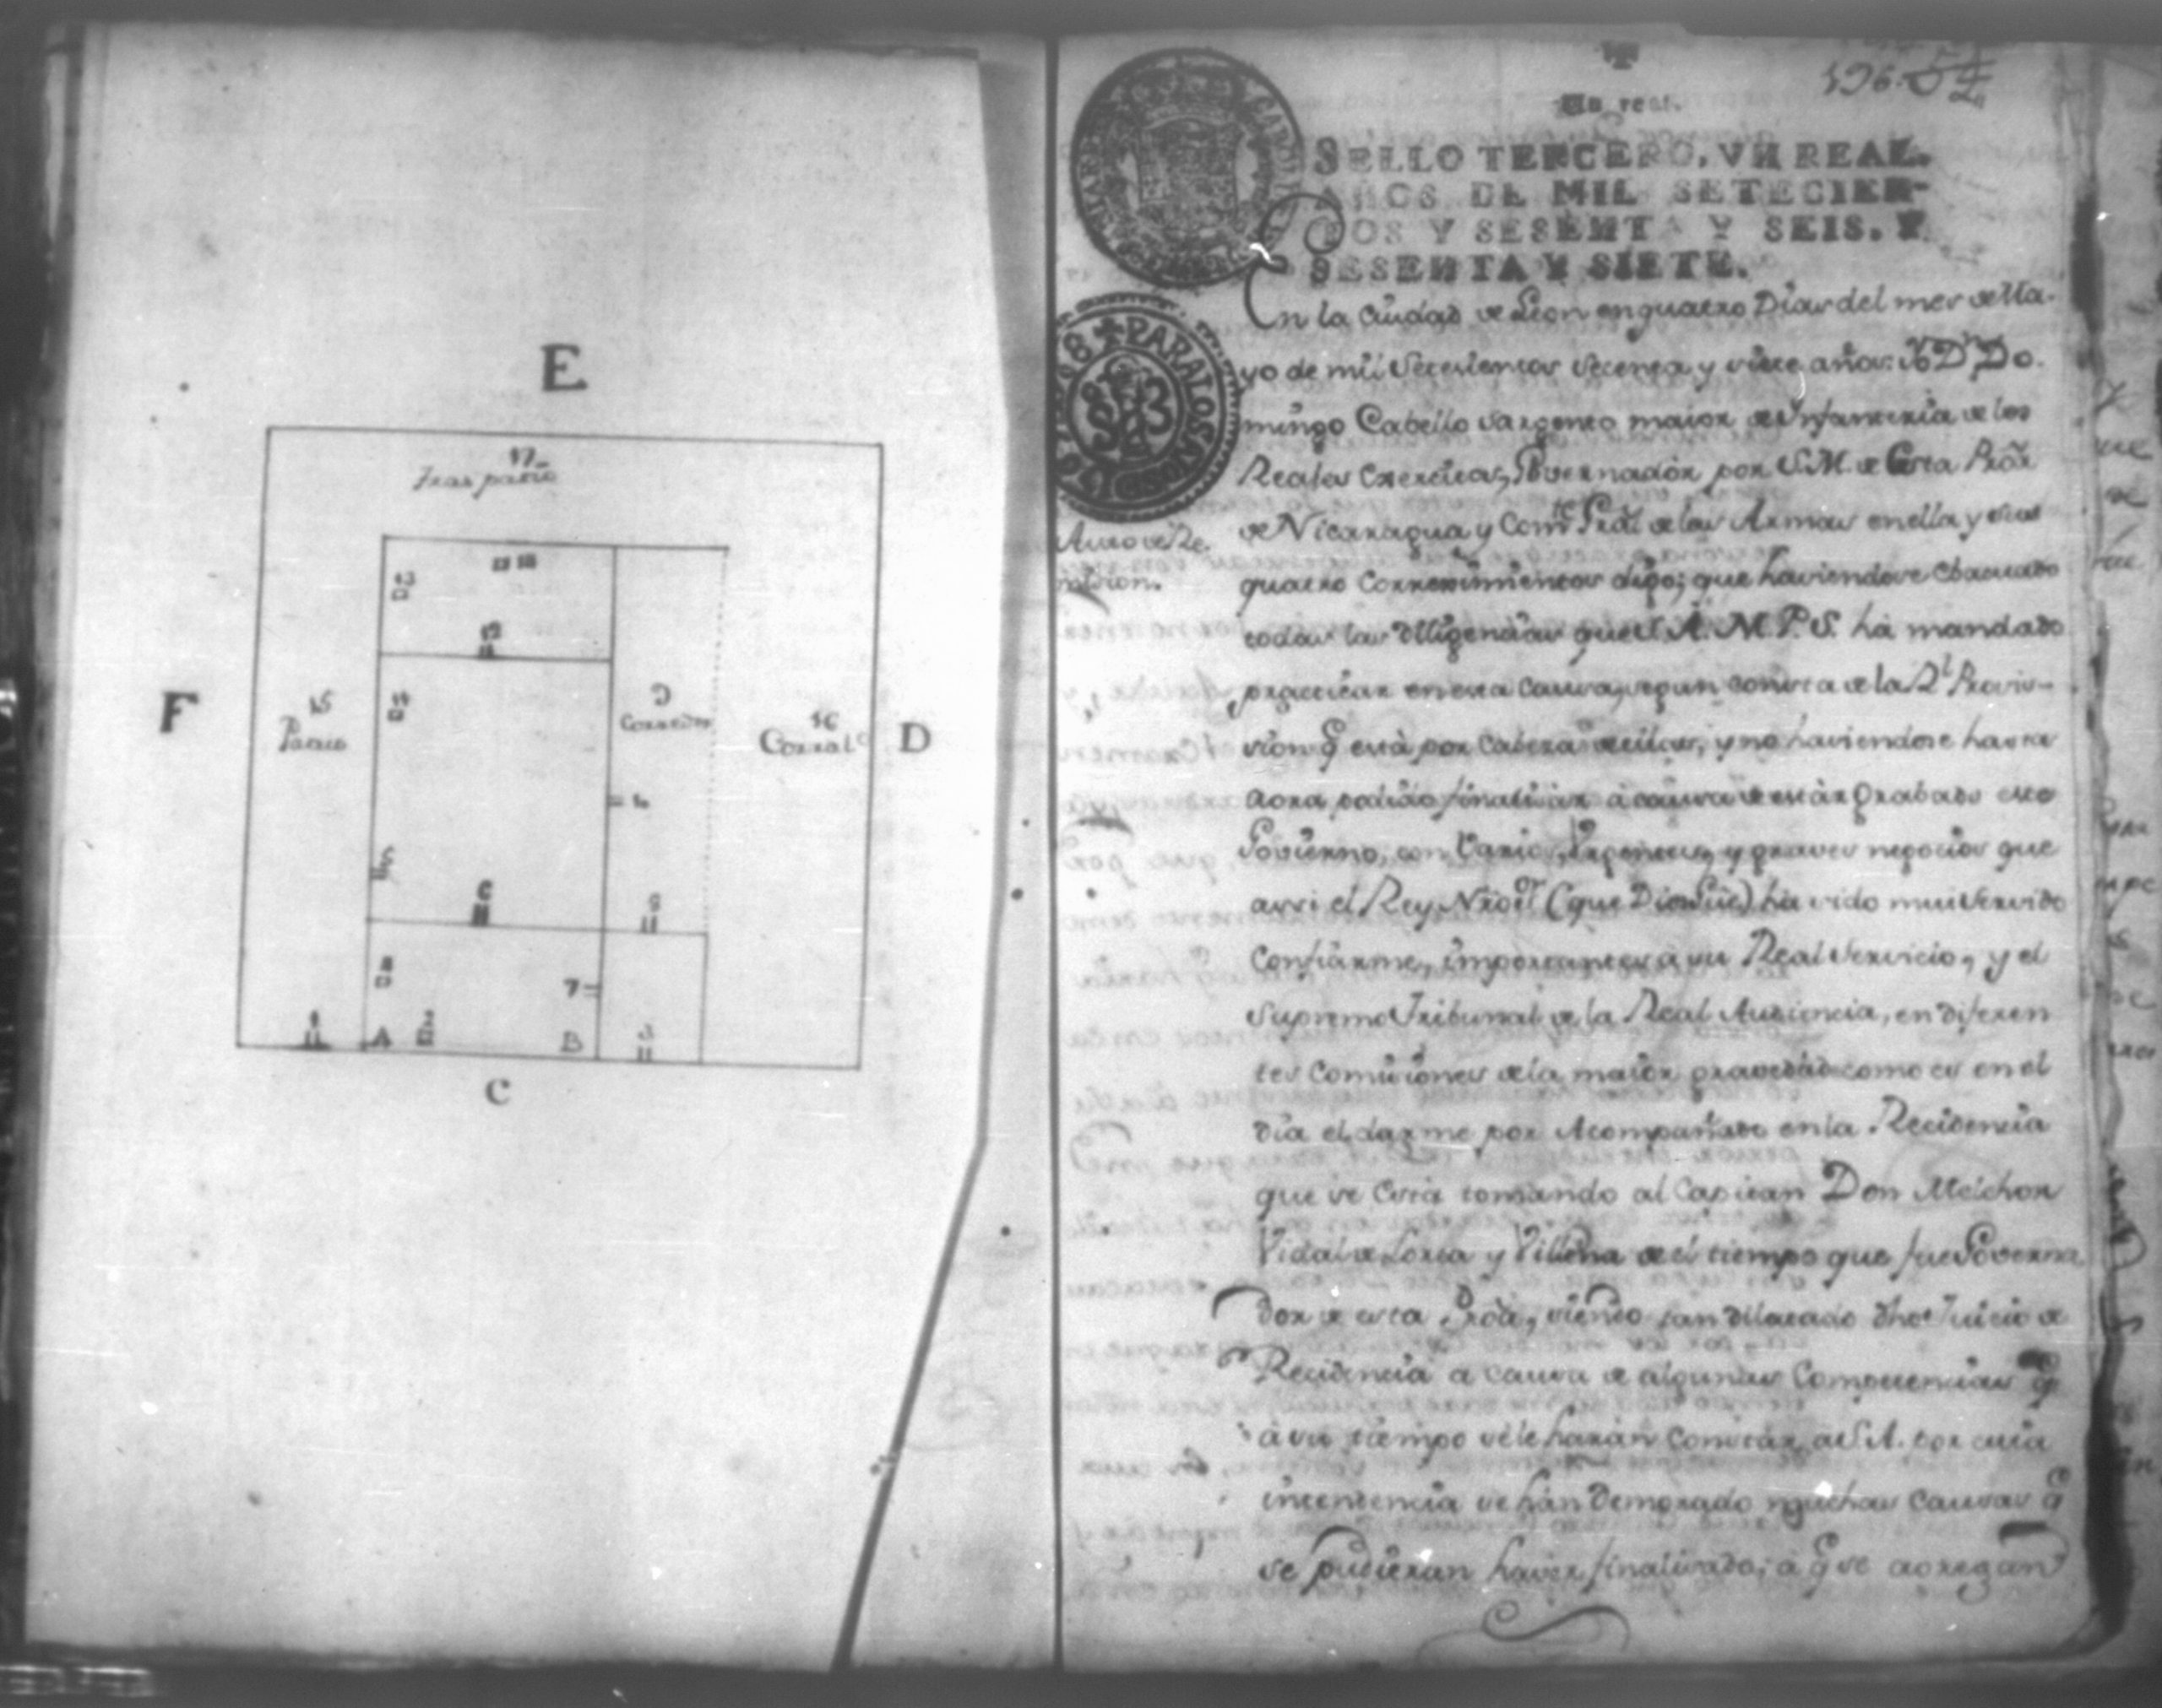 E
17
tras patio
13
12
11
15
Patio
9
Corredor
16
Corral
F
D
6
8
7
1
A
2
B
3
C
196. 54
Un real.
SELLO TERCERO. VN REAL.
AÑOS DE MIL SETECIEN-
TOS Y SESENTA Y SEIS. Y
SESENTA Y SIETE.
PARALOSAÑOSD
Auto de Re-
micion.
En la Ciudad de Leon en quatro Dias del mes de Ma-
yo de mil Setecientos Setenta y siete años: Yo Dn. Do-
mingo Cabello Sargento maior de Ynfanteria de los
Reales Exercitos, Governador por S.M. de Esta Proã
de Nicaragua y Comte. Gral de las Armas en ella y sus
quatro Correximientos digo; que haviendose Ebacuado
todas las diligencias que S.A.M.P.S. hà mandado
practicar en esta Causa, segun consta de la Rl. Provis-
sion q̃ està por Cabeza de ellas, y no haviendose hasta
aora podido finalizar à causa de estàr Grabado este
Govierno, con Varios, Urgentes, y graves negocios que
assi el Rey Nrõ Sr. (que Dios Gue) há sido mui Servido
Confiarme, importantes à su Real Servicio, y el
Supremo Tribunal de la Real Audiencia, en diferen
tes Comiciones de la maior gravedàd como es en el
dia el darme por Acompañado en la Recidencia
que se Està tomando al Capitan Don Melchor
Vidal de Lorca y Villena de el tiempo que fue Governa
dor de esta Proã, siendo tan dilatado dho Juicio de
Recidencia a causa de algunas Competencias q̃
à su tiempo se le haràn Constàr, a S.A. por cuia
intendencia se hàn Demorado muchas Causas q̃
se pudieran haver finalizado; à q̃ se agregan